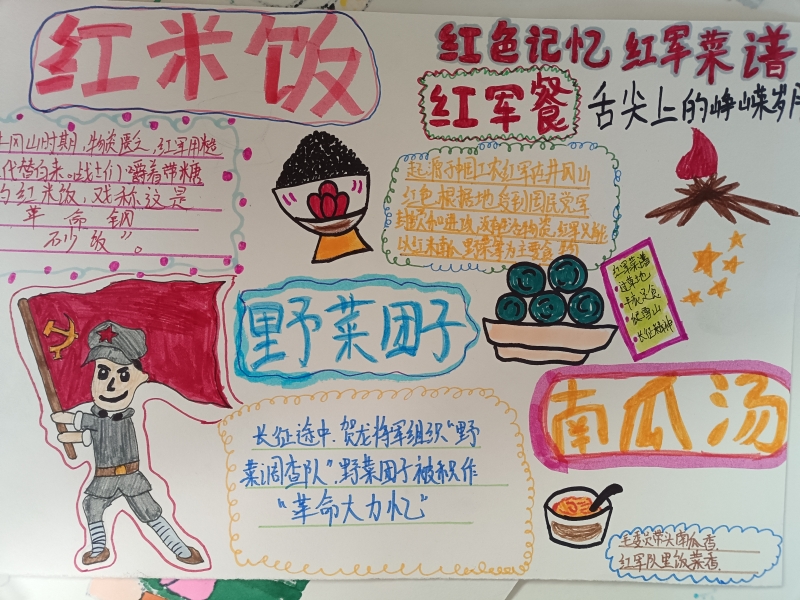 红米饭
红色记忆 红军菜谱
红军餐
舌尖上的峥嵘岁月
井冈山时期,物资匮乏,红军用糙
代替白米。战士们嚼着带糠
的红米饭,戏称这是
革命钢
砂饭”。
起源于中国工农红军在井冈山
红色根据地,受到国民党军
封锁和进攻,没有吃的物资,红军只能
以红米南瓜、野菜等为主要食物
红军菜谱
•过草地
•半夜又食
•爬雪山
•长征精神
野菜团子
长征途中,贺龙将军组织“野
菜调查队”,野菜团子被称作
“革命大力忆”
南瓜汤
毛委员带头南瓜香,
红军队里饭菜香.